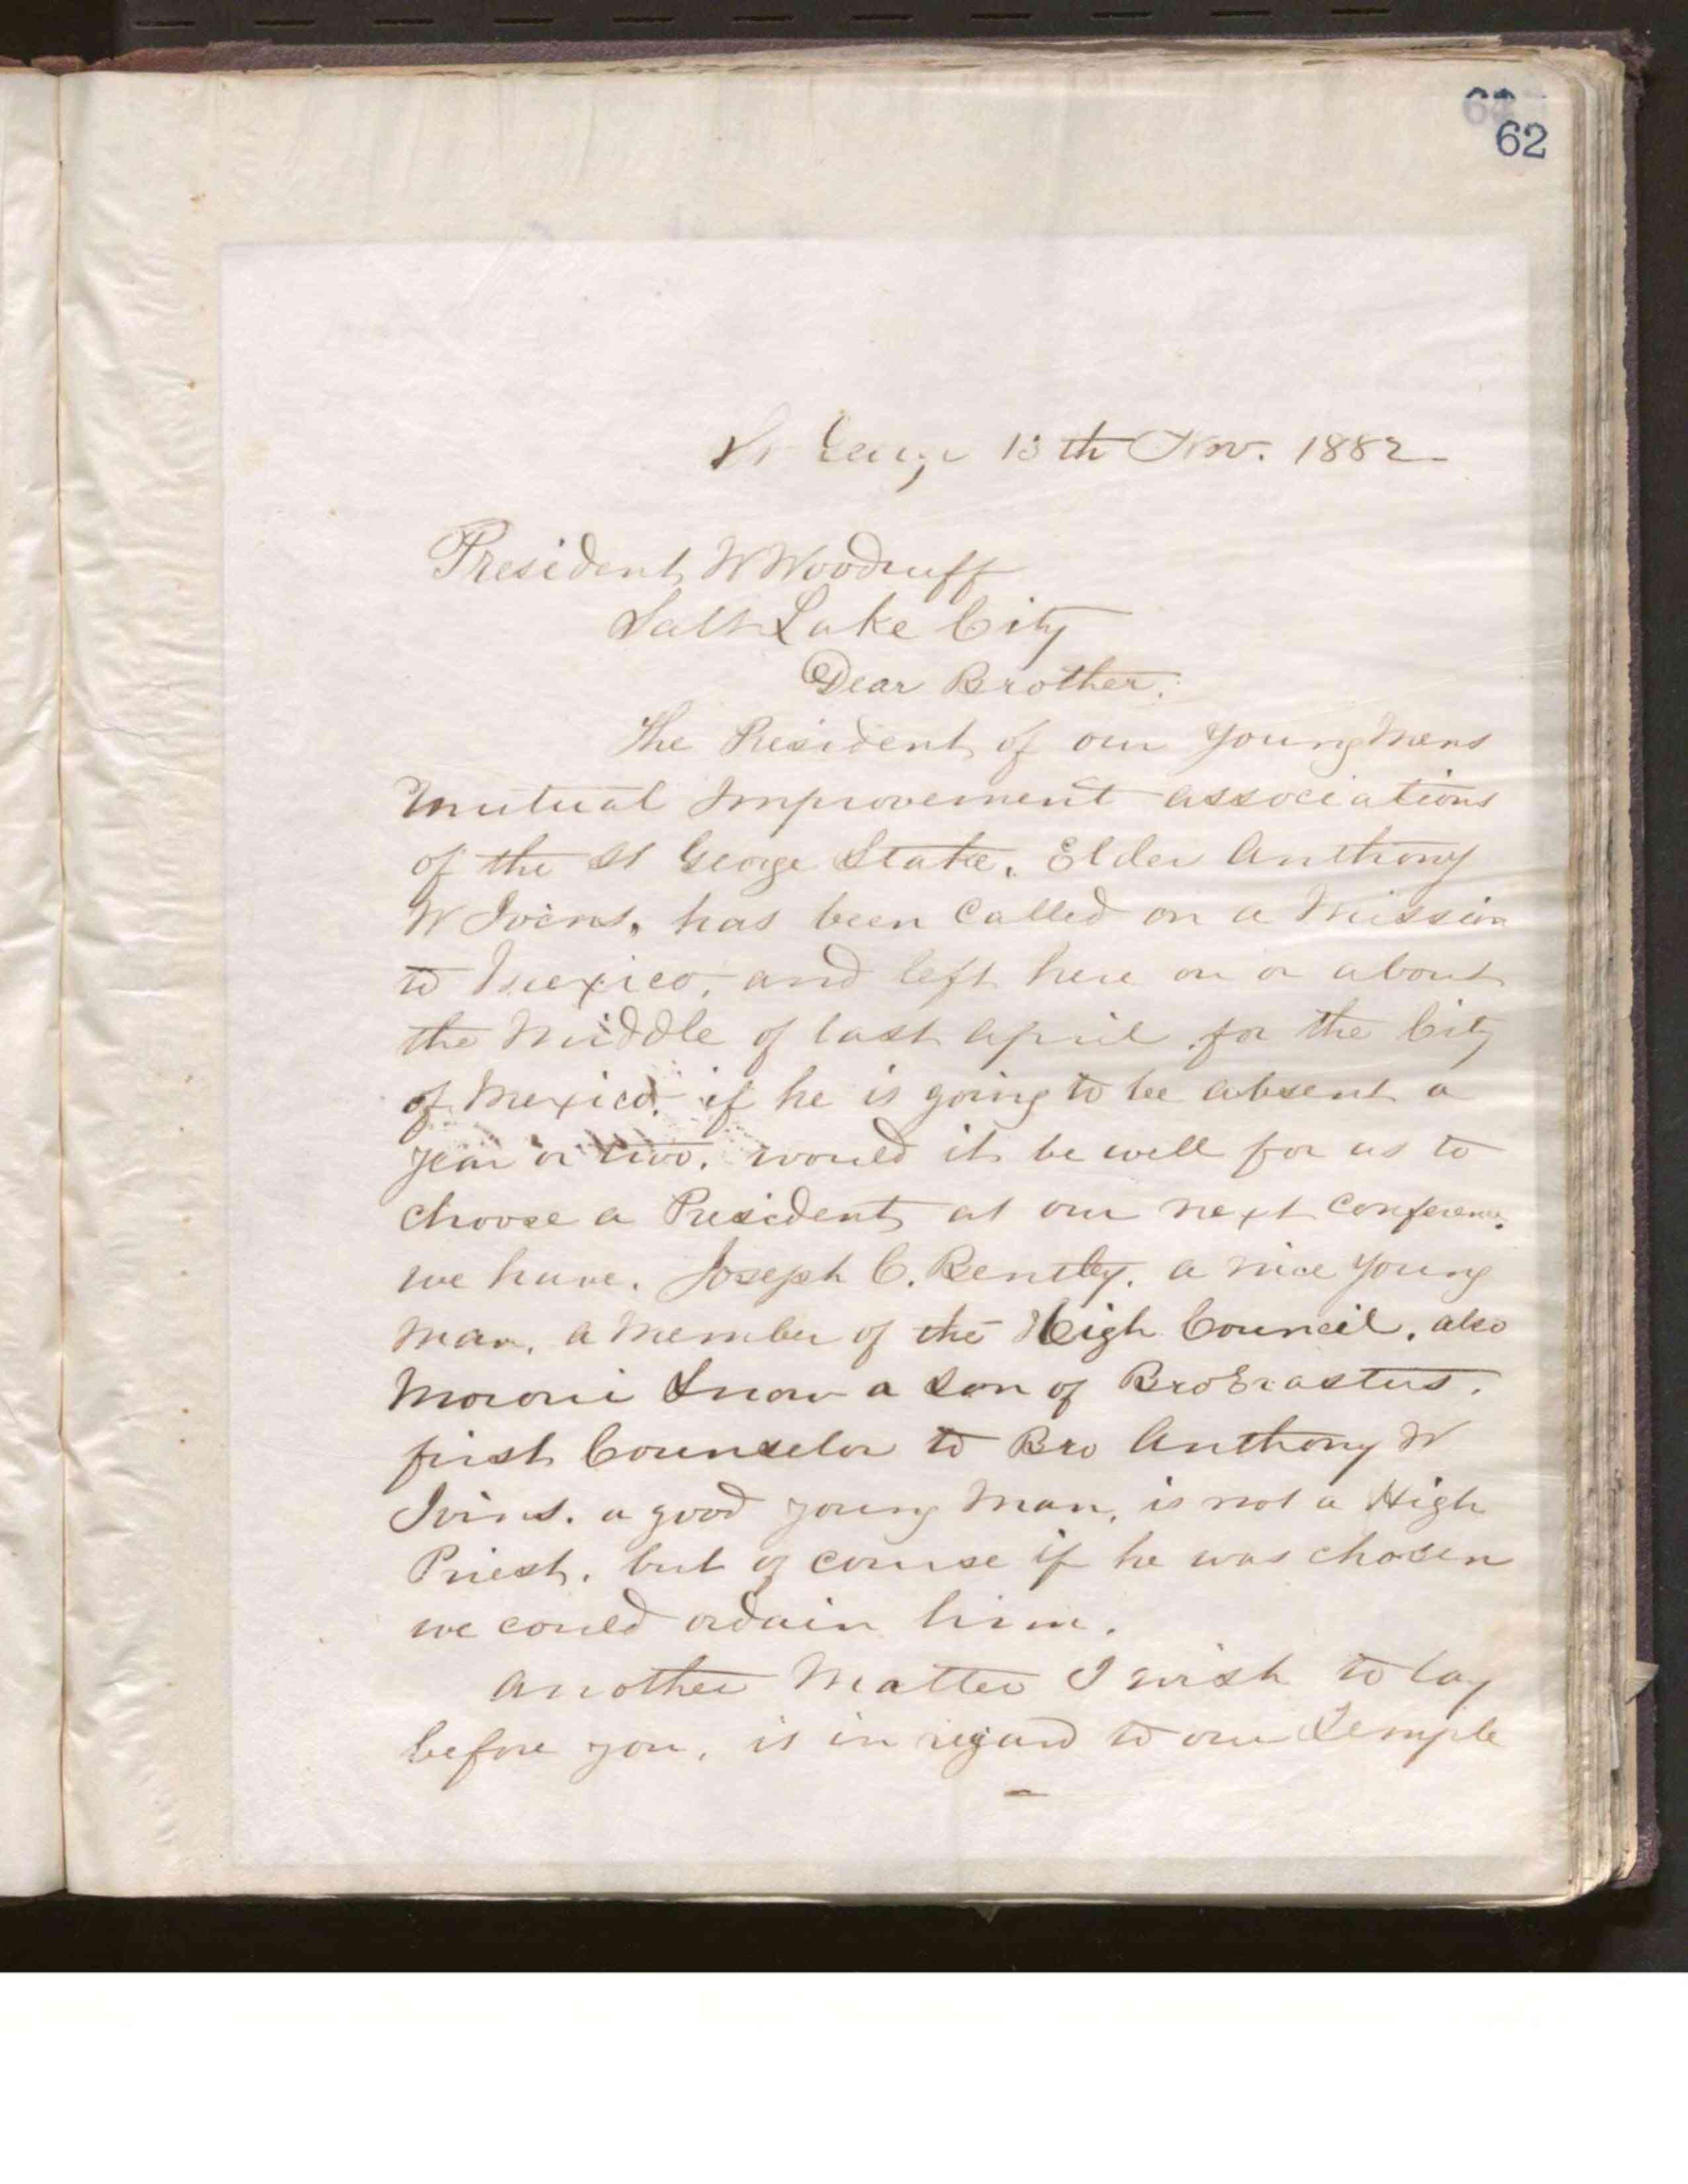 62
St George 13th Nov. 1882
President W Woodruff
Salt Lake City
Dear Brother:
The President of our Young Mens
Mutual Improvement associations
of the St George Stake, Elder Anthony
W Ivins, has been Called on a Mission
to Mexico, and left here on or about
the Middle of last April for the City
of Mexico. if he is going to be absent a
year or two. would it be well for us to
choose a President at our next Conference.
we have. Joseph C. Bentley. a nice young
man, a Member of the High Council. also
Moroni Snow a son of Bro Erastus.
first Counselor to Bro Anthony W
Ivins. a good young Man, is not a High
Priest. but of course if he was chosen
we could ordain him.
Another Matter I wish to lay
before you, is in regard to our Temple